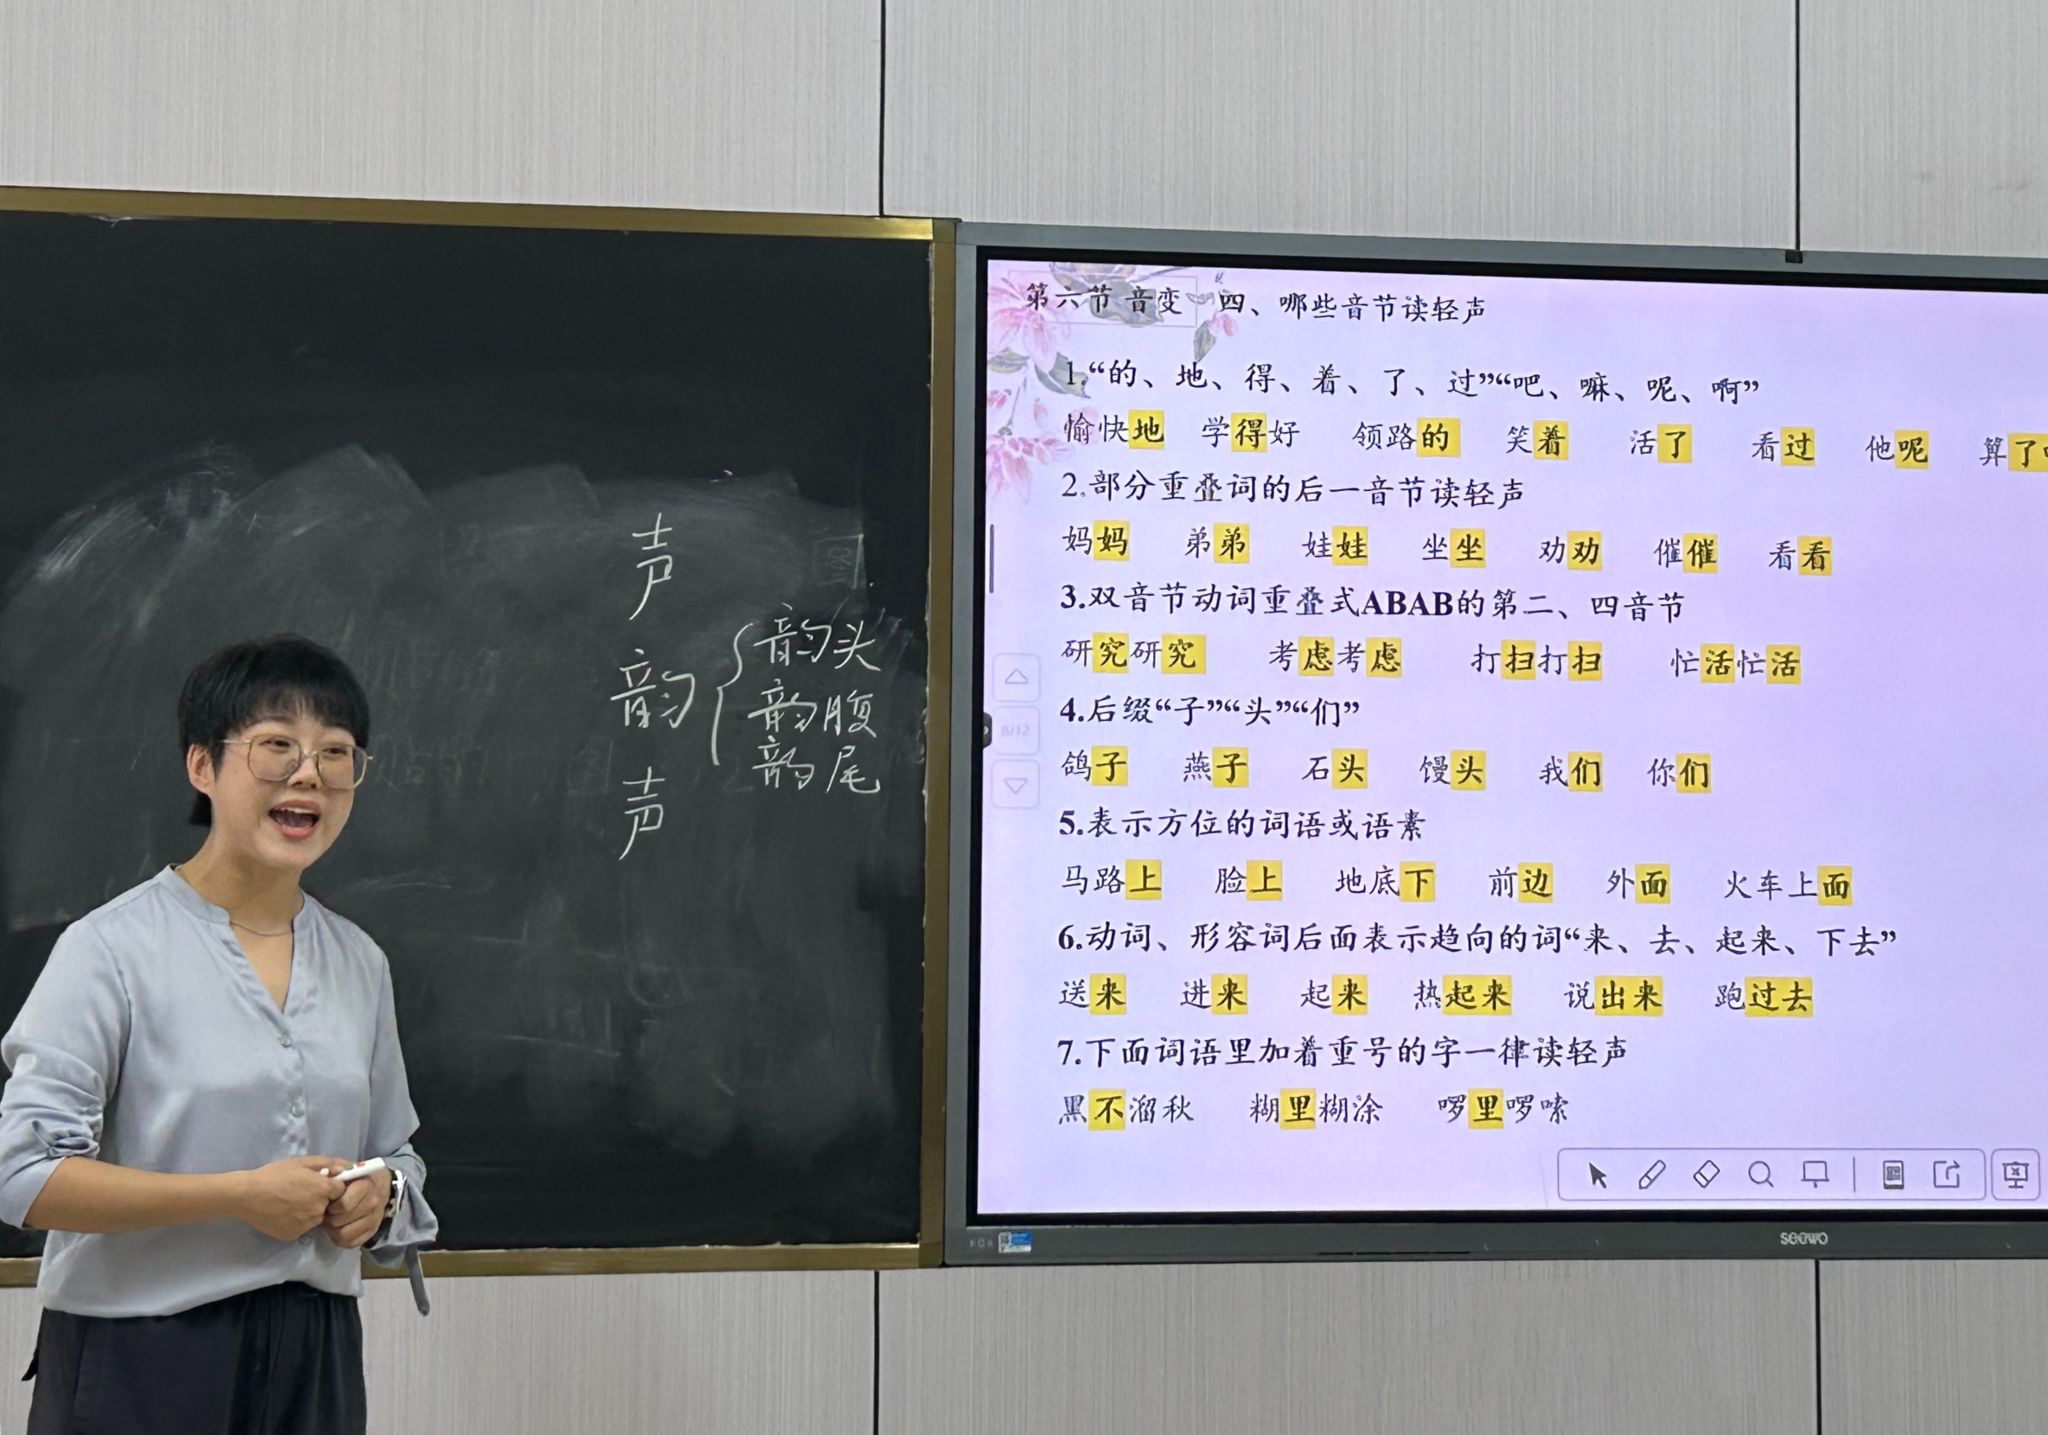 声
韵
韵头
韵腹
韵尾
声
第六节 音变 四、哪些音节读轻声
1.“的、地、得、着、了、过”“吧、嘛、呢、啊”
愉快地 学得好 领路的 笑着 活了 看过 他呢 算了
2.部分重叠词的后一音节读轻声
妈妈 弟弟 娃娃 坐坐 劝劝 催催 看看
3.双音节动词重叠式ABAB的第二、四音节
研究研究 考虑考虑 打扫打扫 忙活忙活
4.后缀“子”“头”“们”
鸽子 燕子 石头 馒头 我们 你们
5.表示方位的词语或语素
马路上 脸上 地底下 前边 外面 火车上面
6.动词、形容词后面表示趋向的词“来、去、起来、下去”
送来 进来 起来 热起来 说出来 跑过去
7.下面词语里加着重号的字一律读轻声
黑不溜秋 糊里糊涂 啰里啰嗦
8/12
seewo